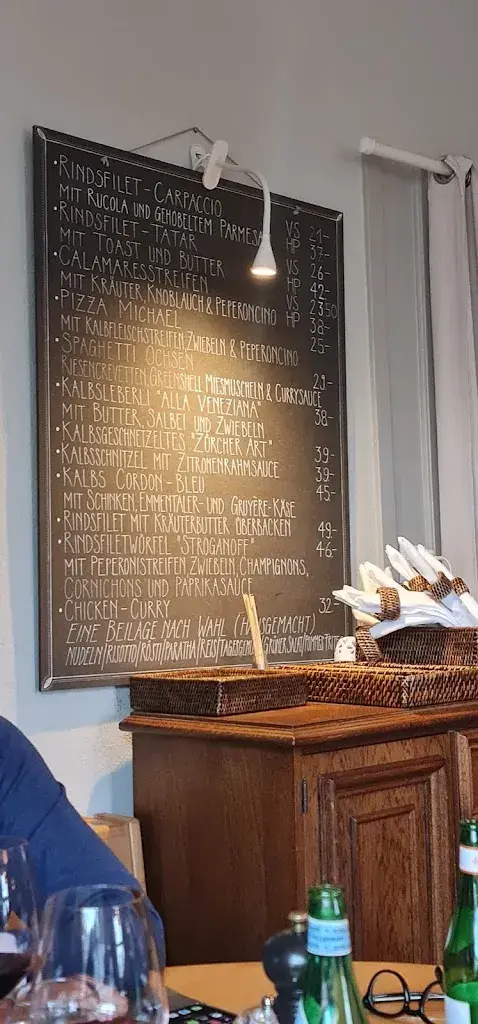 ·RINDSFILET-CARPACCIO VS 21-
MIT RUCOLA UND GEHOBELTEM PARMESAN HP 37-
·RINDSFILET-TATAR VS 26-
MIT TOAST UND BUTTER HP 42-
·CALAMARESSTREIFEN VS 23.50
MIT KRÄUTER, KNOBLAUCH & PEPERONCINO HP 38-
·PIZZA MICHAEL 25-
MIT KALBFLEISCHSTREIFEN, ZWIEBELN & PEPERONCINO
·SPAGHETTI OCHSEN 29-
RIESENCREVETTEN, GREENSHELL MIESMUSCHELN & CURRYSAUCE
·KALBSLEBERLI "ALLA VENEZIANA" 38-
MIT BUTTER, SALBEI UND ZWIEBELN
·KALBSGESCHNETZELTES "ZÜRCHER ART" 39-
·KALBSSCHNITZEL MIT ZITRONENRAHMSAUCE 39-
·KALBS CORDON-BLEU 45-
MIT SCHINKEN, EMMENTALER- UND GRUYÈRE-KÄSE
·RINDSFILET MIT KRÄUTERBUTTER ÜBERBACKEN 49-
·RINDSFILETWÜRFEL "STROGANOFF" 46-
MIT PEPERONISTREIFEN ZWIEBELN, CHAMPIGNONS,
CORNICHONS UND PAPRIKASAUCE
·CHICKEN-CURRY 32-
EINE BEILAGE NACH WAHL (HAUSGEMACHT)
NUDELN/RISOTTO/RÖSTI/PARATHA/REIS/TAGESGEMÜSE/GRÜNER SALAT/POMMES FRITES